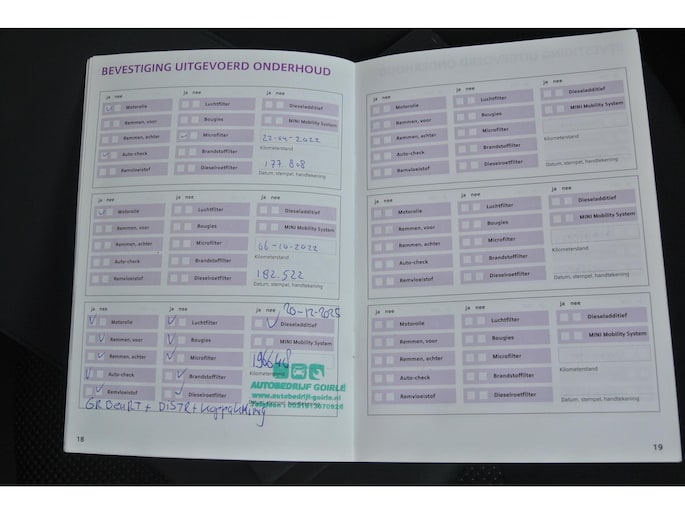 BEVESTIGING UITGEVOERD ONDERHOUD
ja nee ja nee ja nee
Motorolie Luchtfilter Dieseladditief
Remmen, voor Bougies MINI Mobility System
Remmen, achter Microfilter 22-04-2022
Kilometerstand
Auto-check Brandstoffilter 177.808
Remvloeistof Dieselroetfilter Datum, stempel, handtekening
ja nee ja nee ja nee
Motorolie Luchtfilter Dieseladditief
Remmen, voor Bougies MINI Mobility System
Remmen, achter Microfilter 06-10-2022
Kilometerstand
Auto-check Brandstoffilter 182.522
Remvloeistof Dieselroetfilter Datum, stempel, handtekening
ja nee ja nee ja nee 20-12-2025
Motorolie Luchtfilter Dieseladditief
Remmen, voor Bougies MINI Mobility System
Remmen, achter Microfilter
Kilometerstand
Auto-check Brandstoffilter
AUTOBEDRIJF GOIRLE
Remvloeistof Dieselroetfilter
www.autobedrijf-goirle.nl
GR BEURT + DISTR +
18
ja nee ja nee ja nee
Motorolie Luchtfilter Dieseladditief
Remmen, voor Bougies MINI Mobility System
Remmen, achter Microfilter
Kilometerstand
Auto-check Brandstoffilter
Remvloeistof Dieselroetfilter Datum, stempel, handtekening
ja nee ja nee ja nee
Motorolie Luchtfilter Dieseladditief
Remmen, voor Bougies MINI Mobility System
Remmen, achter Microfilter
Kilometerstand
Auto-check Brandstoffilter
Remvloeistof Dieselroetfilter Datum, stempel, handtekening
ja nee ja nee ja nee
Motorolie Luchtfilter Dieseladditief
Remmen, voor Bougies MINI Mobility System
Remmen, achter Microfilter
Kilometerstand
Auto-check Brandstoffilter
Remvloeistof Dieselroetfilter Datum, stempel, handtekening
19